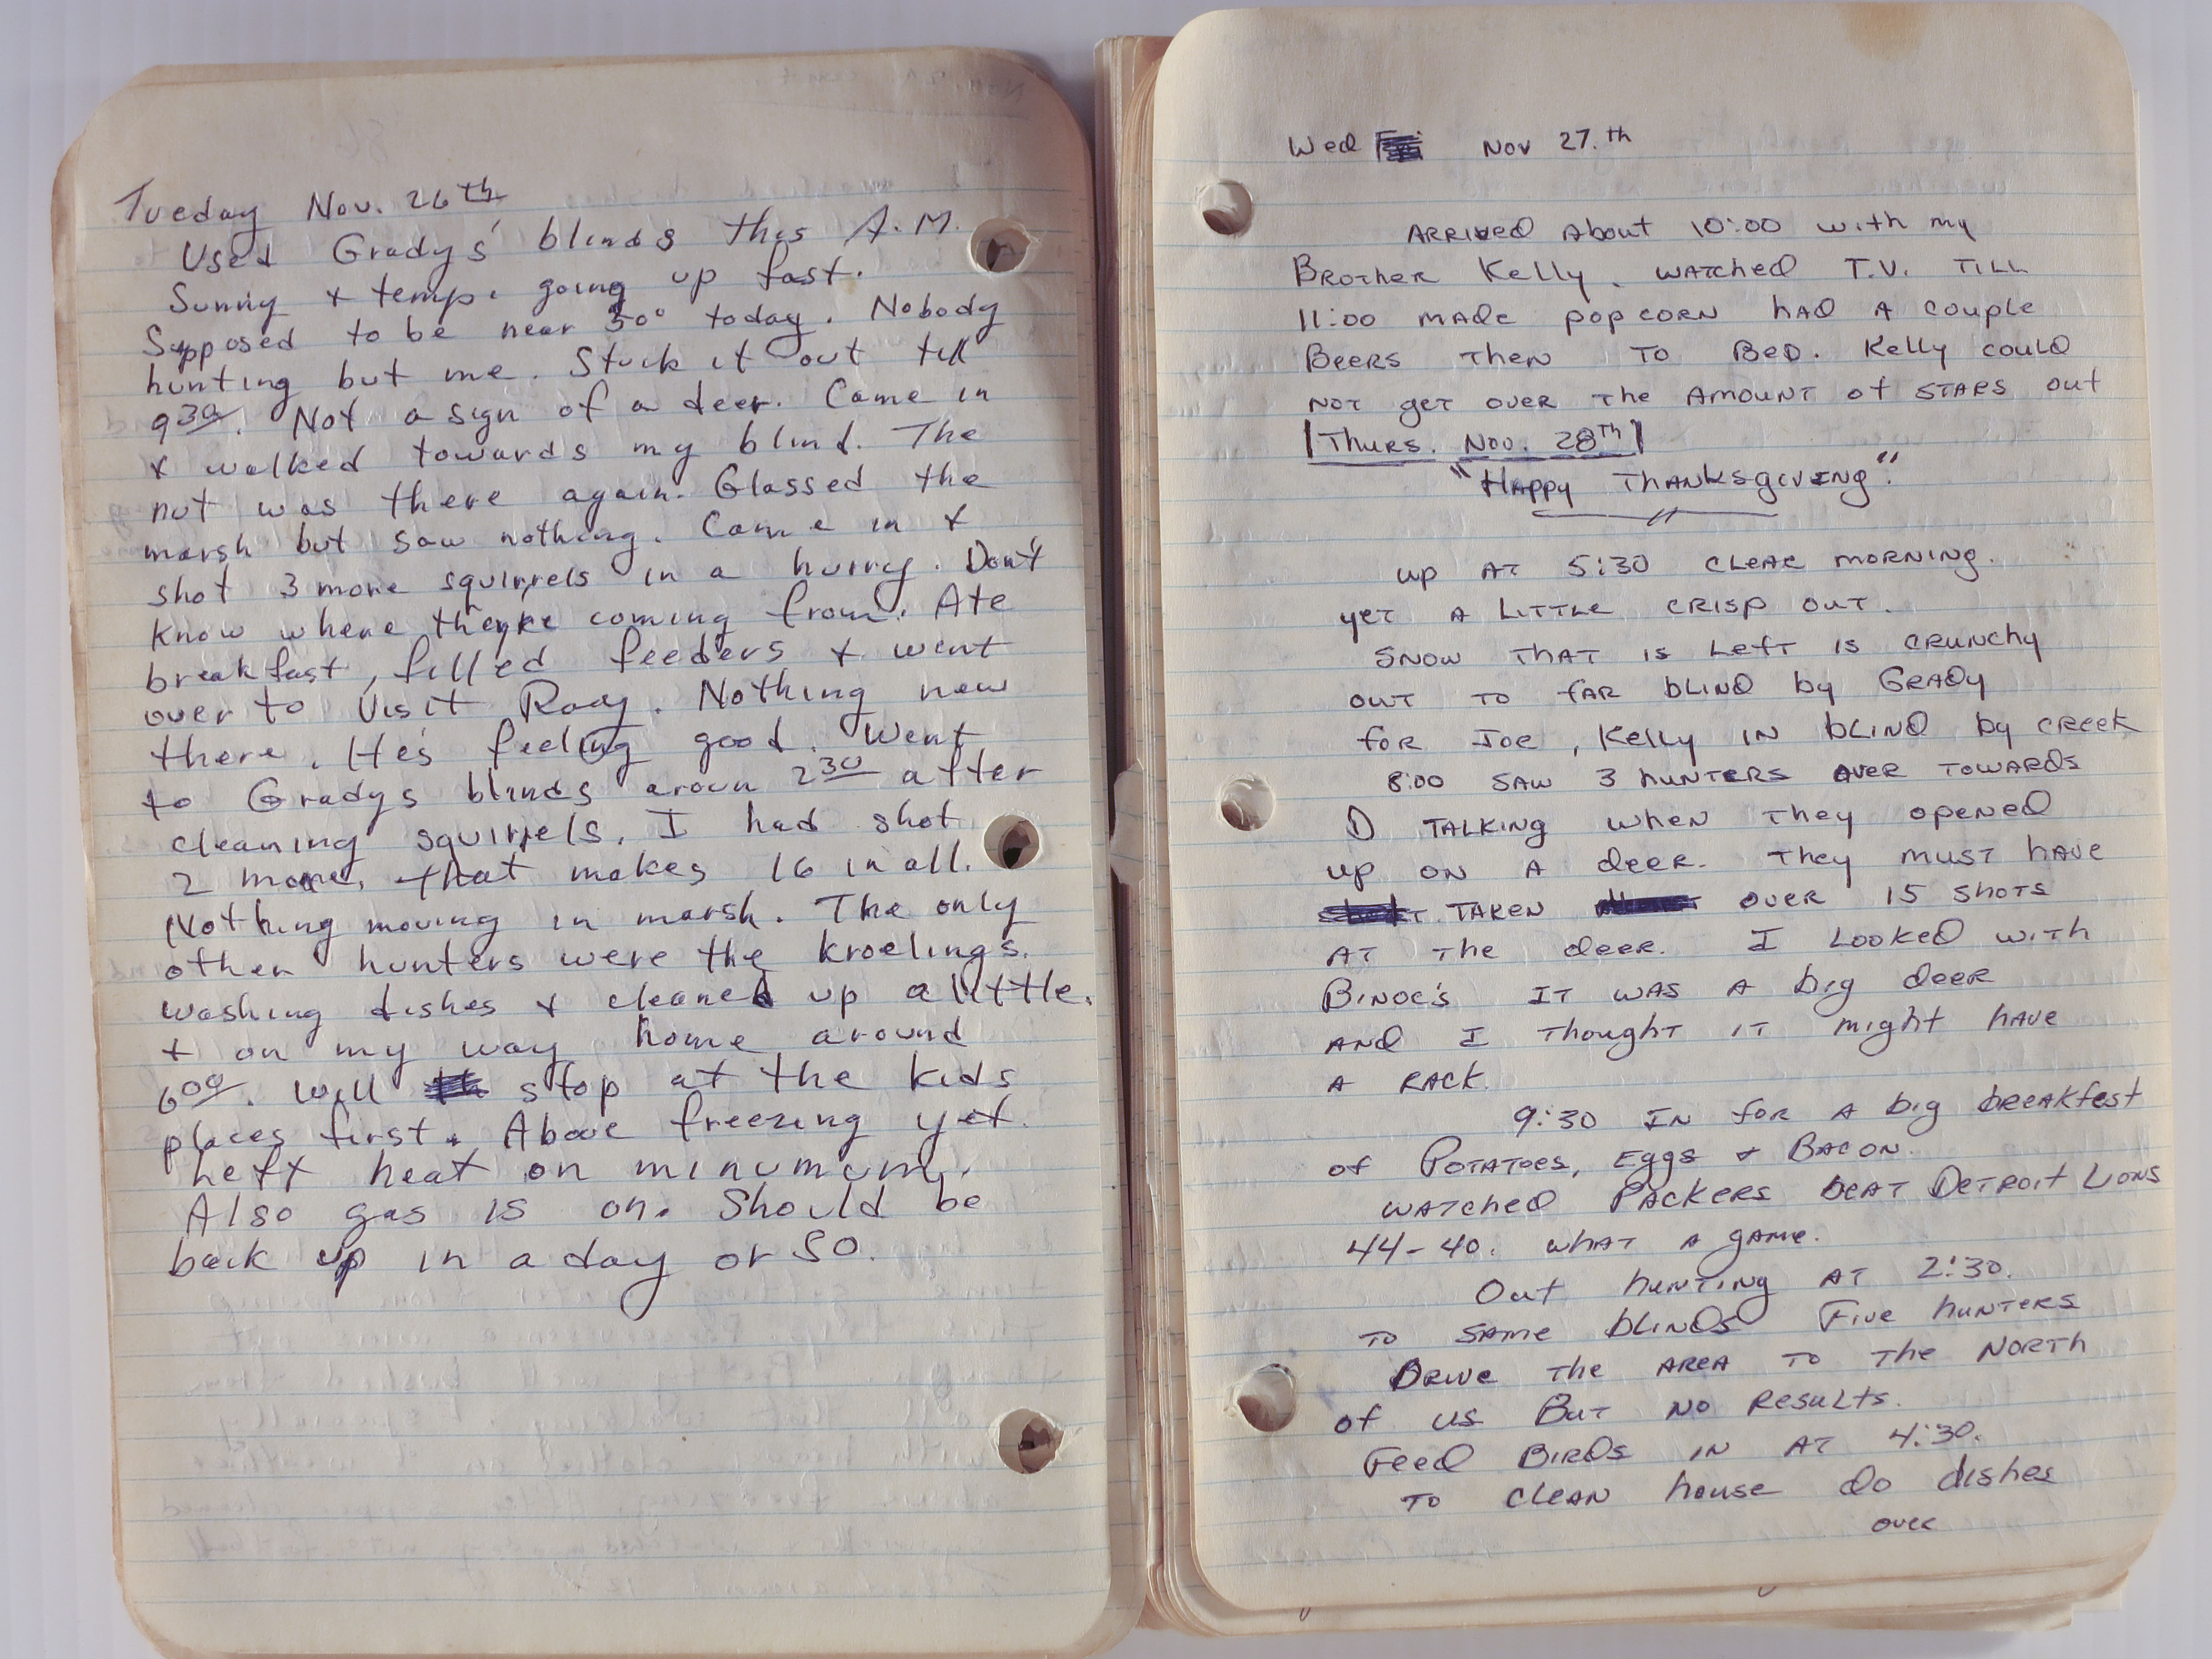 Tueday Nov. 26th
Used Gradys' blinds this A.M.
Sunny & temp. going up fast.
Supposed to be near 50° today. Nobody
hunting but me. Stuck it out till
9 30. Not a sign of a deer. Came in
& walked towards my blind. The
nut was there again. Glassed the
marsh but saw nothing. Came in &
shot 3 more squirrels in a hurry. Don't
know where they're coming from. Ate
breakfast, filled feeders & went
over to visit Rody. Nothing new
there. He's feeling good. Went
to Gradys blinds aroun 2 30 after
cleaning squirrels. I had shot
2 more, that makes 16 in all.
Nothing moving in marsh. The only
other hunters were the kroelings.
washing dishes & cleaned up a little.
& on my way home around
6 00. Will stop at the kids
places first. Above freezing yet.
Left heat on minumum.
Also gas is on. Should be
back up in a day or so.
Wed Nov 27.th
ARRIVED About 10:00 with my
BROTHER Kelly. WATCHED T.V. TILL
11:00 MADE POPCORN HAD A COUPLE
BEERS THEN TO BED. Kelly COULD
NOT get OVER THE AMOUNT of STARS OUT
Thurs. Nov. 28Th
"Happy THANKSgivING".
up AT 5:30 CLEAR MORNING.
yet A LITTLE CRISP OUT.
SNOW THAT IS Left IS CRUNCHY
OUT TO fAR bLIND by GRADy
for Joe, Kelly IN bLIND by CREEK
8:00 SAW 3 hUNTERS OVER TOWARDS
D TALKING when They opened
up ON A deer. They MUST hAVE
TAKEN OVER 15 ShOTS
AT The deer. I LOOKED WITH
BINOC'S IT WAS A big deer
AND I Thought IT might hAVE
A RACK.
9:30 IN for A big bREAKfest
of POTATOES, Eggs & BACON.
WATCHED PACKERS bEAT DETROIT LIONS
44-40. WhAT A gAME.
OuT huNTINg AT 2:30.
TO SAME bLINDS FIVE huNTERS
DRIVE The AREA TO The NORTh
of us BuT NO RESuLTS.
FEED BIRDS IN AT 4:30.
TO CLEAN house do dishes
over